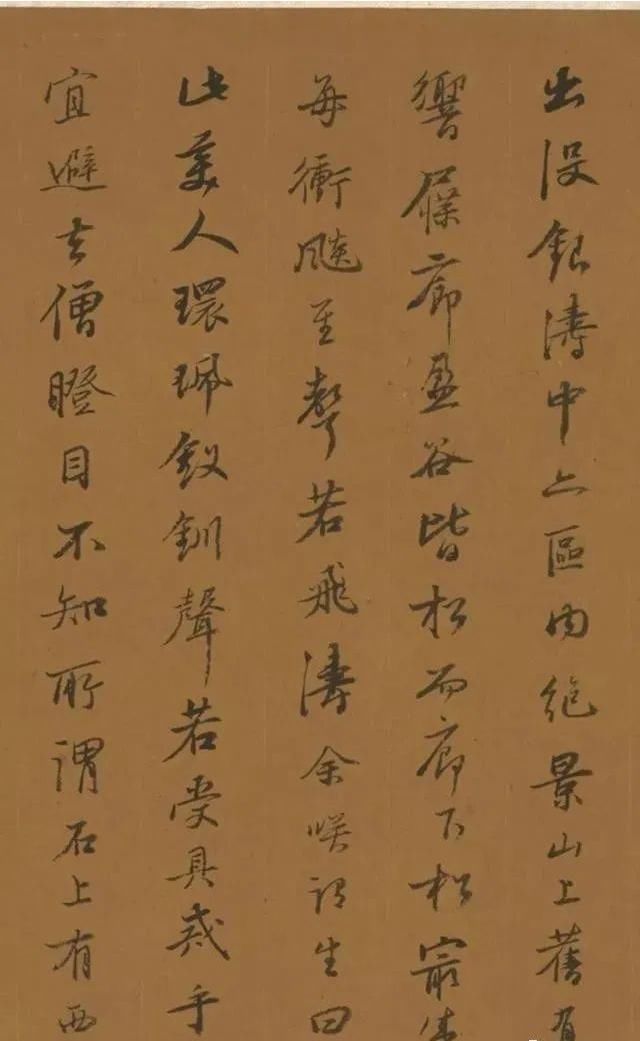 出沒銀濤中亦區內絕景山上舊有
響屧廊盈谷皆松而廊下松最
每衝飈至聲若飛濤余咲謂生曰
此美人環珮釵釧聲若受具戒乎
宜避去僧瞪目不知所謂石上有西